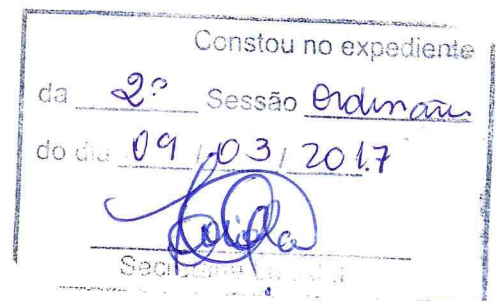 Constou no expediente
da 2ª Sessão Ordinária
do dia 09 / 03 / 2017